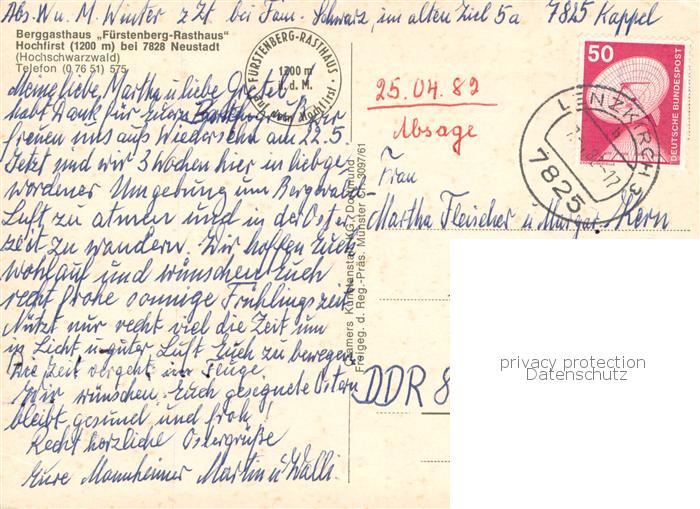 Abs. W. u. M. Winter z. Zt. bei Fam. Schwarz, im alten Ziel 5a 7825 Kappel
Berggasthaus „Fürstenberg-Rasthaus"
Hochfirst (1200 m) bei 7828 Neustadt
(Hochschwarzwald)
Telefon (0 76 51) 575
FÜRSTENBERG-RASTHAUS
1200 m
ü. d. M.
auf dem Hochfirst
Meine liebe Martha u. liebe Gretel
habt Dank für Eure
freuen uns aufs Wiedersehn am 22.5.
Jetzt sind wir 3 Wochen hier in liebge-
wordener Umgebung um Bergwald-
Luft zu atmen und in der Oster-
zeit zu wandern. Wir hoffen Euch
wohlauf und wünschen Euch
recht frohe sonnige Frühlingszeit
Nützt nur recht viel die Zeit um
in Licht u. guter Luft Euch zu bewegen
Die Zeit vergeht im Fluge.
Wir wünschen Euch gesegnete Ostern
bleibt gesund und froh!
Recht herzliche Ostergrüße
Eure Mannheimer Martin u. Walli.
Cramers Kunstanstalt KG, Dortmund
Freigeg. d. Reg.-Präs. Münster Cr. 3097/61
25.04.89
Absage
50
DEUTSCHE BUNDESPOST
LENZKIRCH 3
7825
Frau
Martha Fleischer u. Margar. Kern
DDR 8
privacy protection
Datenschutz